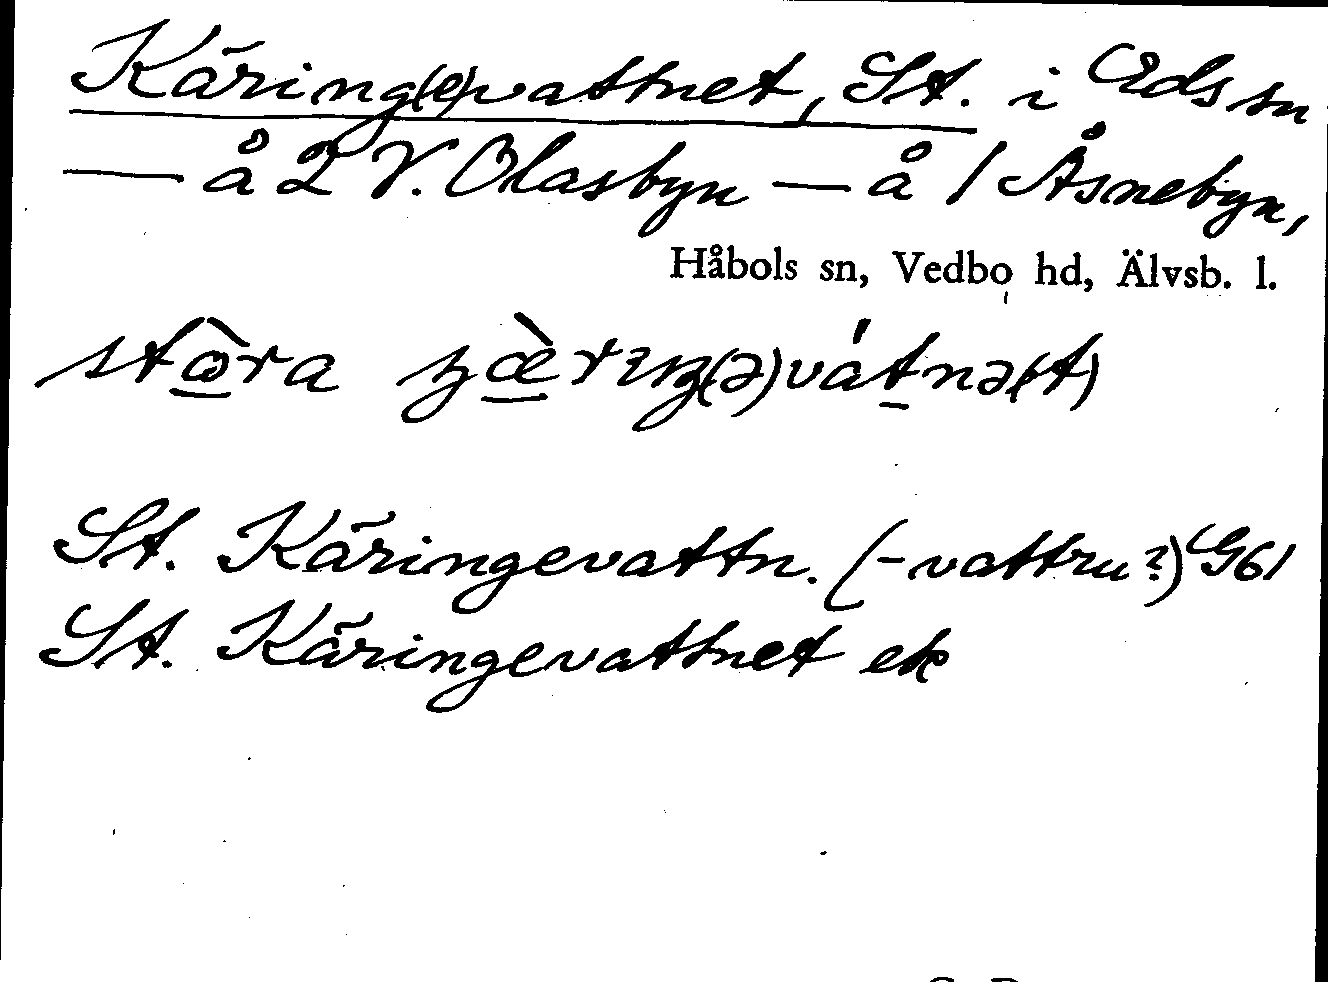 Käring(e)vattnet, St. i Eds sn
— å 2 V. Olasbyn — å 1 Åsnebyn,
Håbols sn, Vedbo hd, Älvsb. l.
St. Käringevattn. (-vattnu?) G61
St. Käringevattnet ek